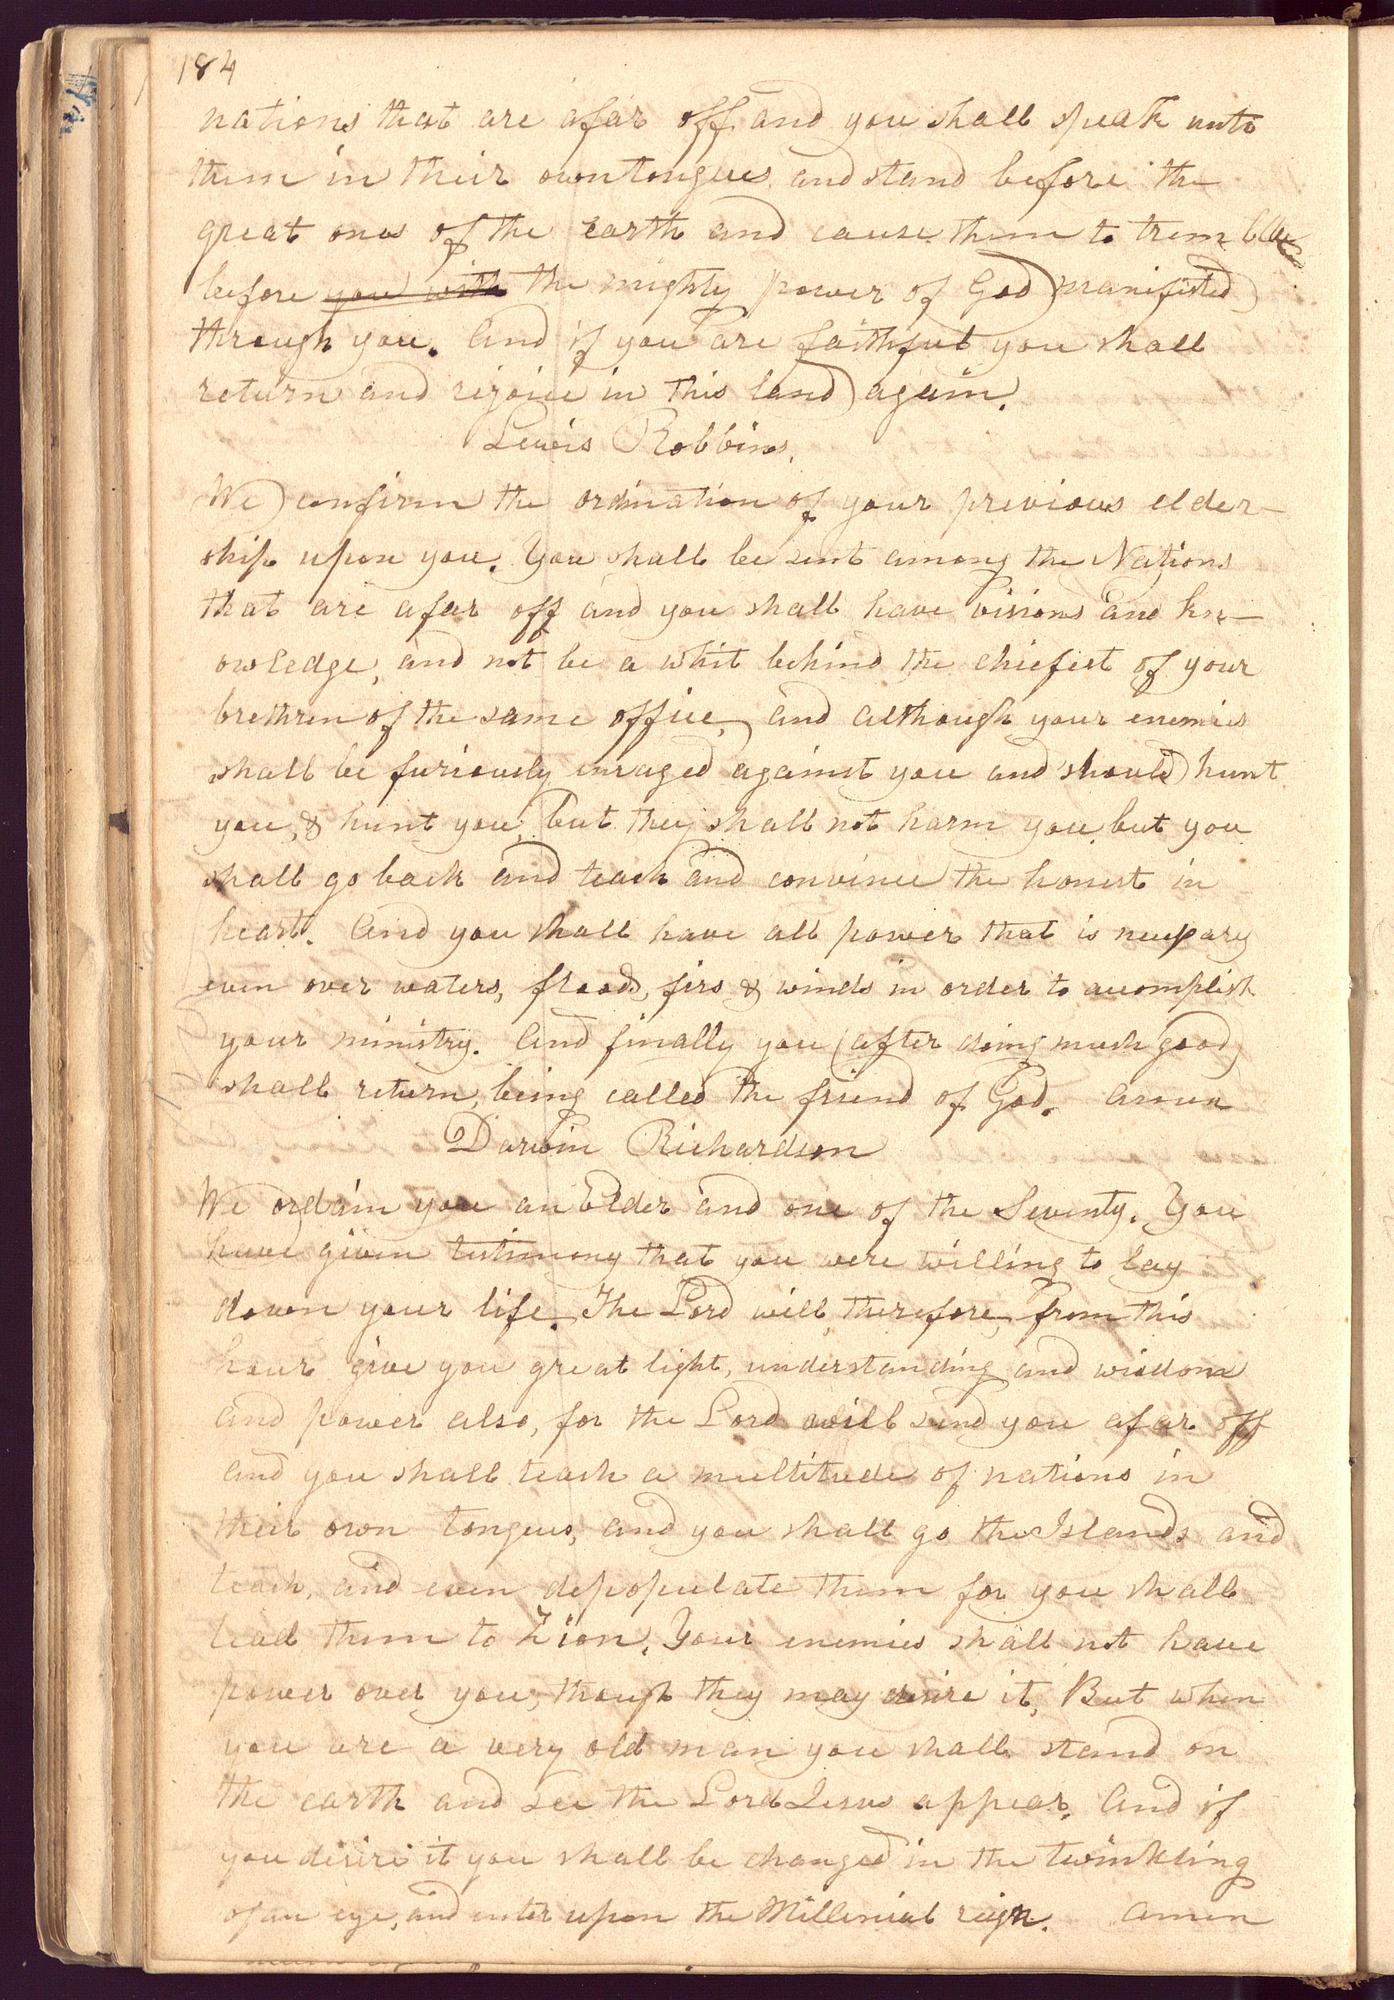 184
nations that are afar off and you shall speak unto
them in their own tongues and stand before the
great ones of the earth and cause them to tremble
before you with the mighty power of God manifested
through you. And if you are faithful you shall
return and rejoice in this land again.
Lewis Robbins.
We confirm the ordination of your previous elder-
ship upon you. You shall be sent among the Nations
that are afar off and you shall have visions and kn-
owledge, and not be a whit behind the chiefest of your
brethren of the same office, and although your enemies
shall be furiously enraged against you and should hunt
you, & hunt you, but they shall not harm you, but you
shall go back and teach and convince the honest in
heart. And you shall have all power that is necessary
even over waters, floods, fire & winds in order to accomplish
your ministry. And finally you (after doing much good)
shall return, being called the friend of God. Amen
Darwin Richardson
We ordain you an Elder and one of the Seventy. You
have given testimony that you were willing to lay
down your life. The Lord will, therefore, from this
hour give you great light, understanding and wisdom
and power also, for the Lord will send you afar off
and you shall teach a multitude of nations in
their own tongues, and you shall go the Islands and
teach, and even depopulate them for you shall
lead them to Zion. Your enemies shall not have
power over you, though they may desire it, But when
you are a very old man you shall stand on
the earth and see the Lord Jesus appear. And if
you desire it you shall be changed in the twinkling
of an eye, and enter upon the Millenial reign. Amen